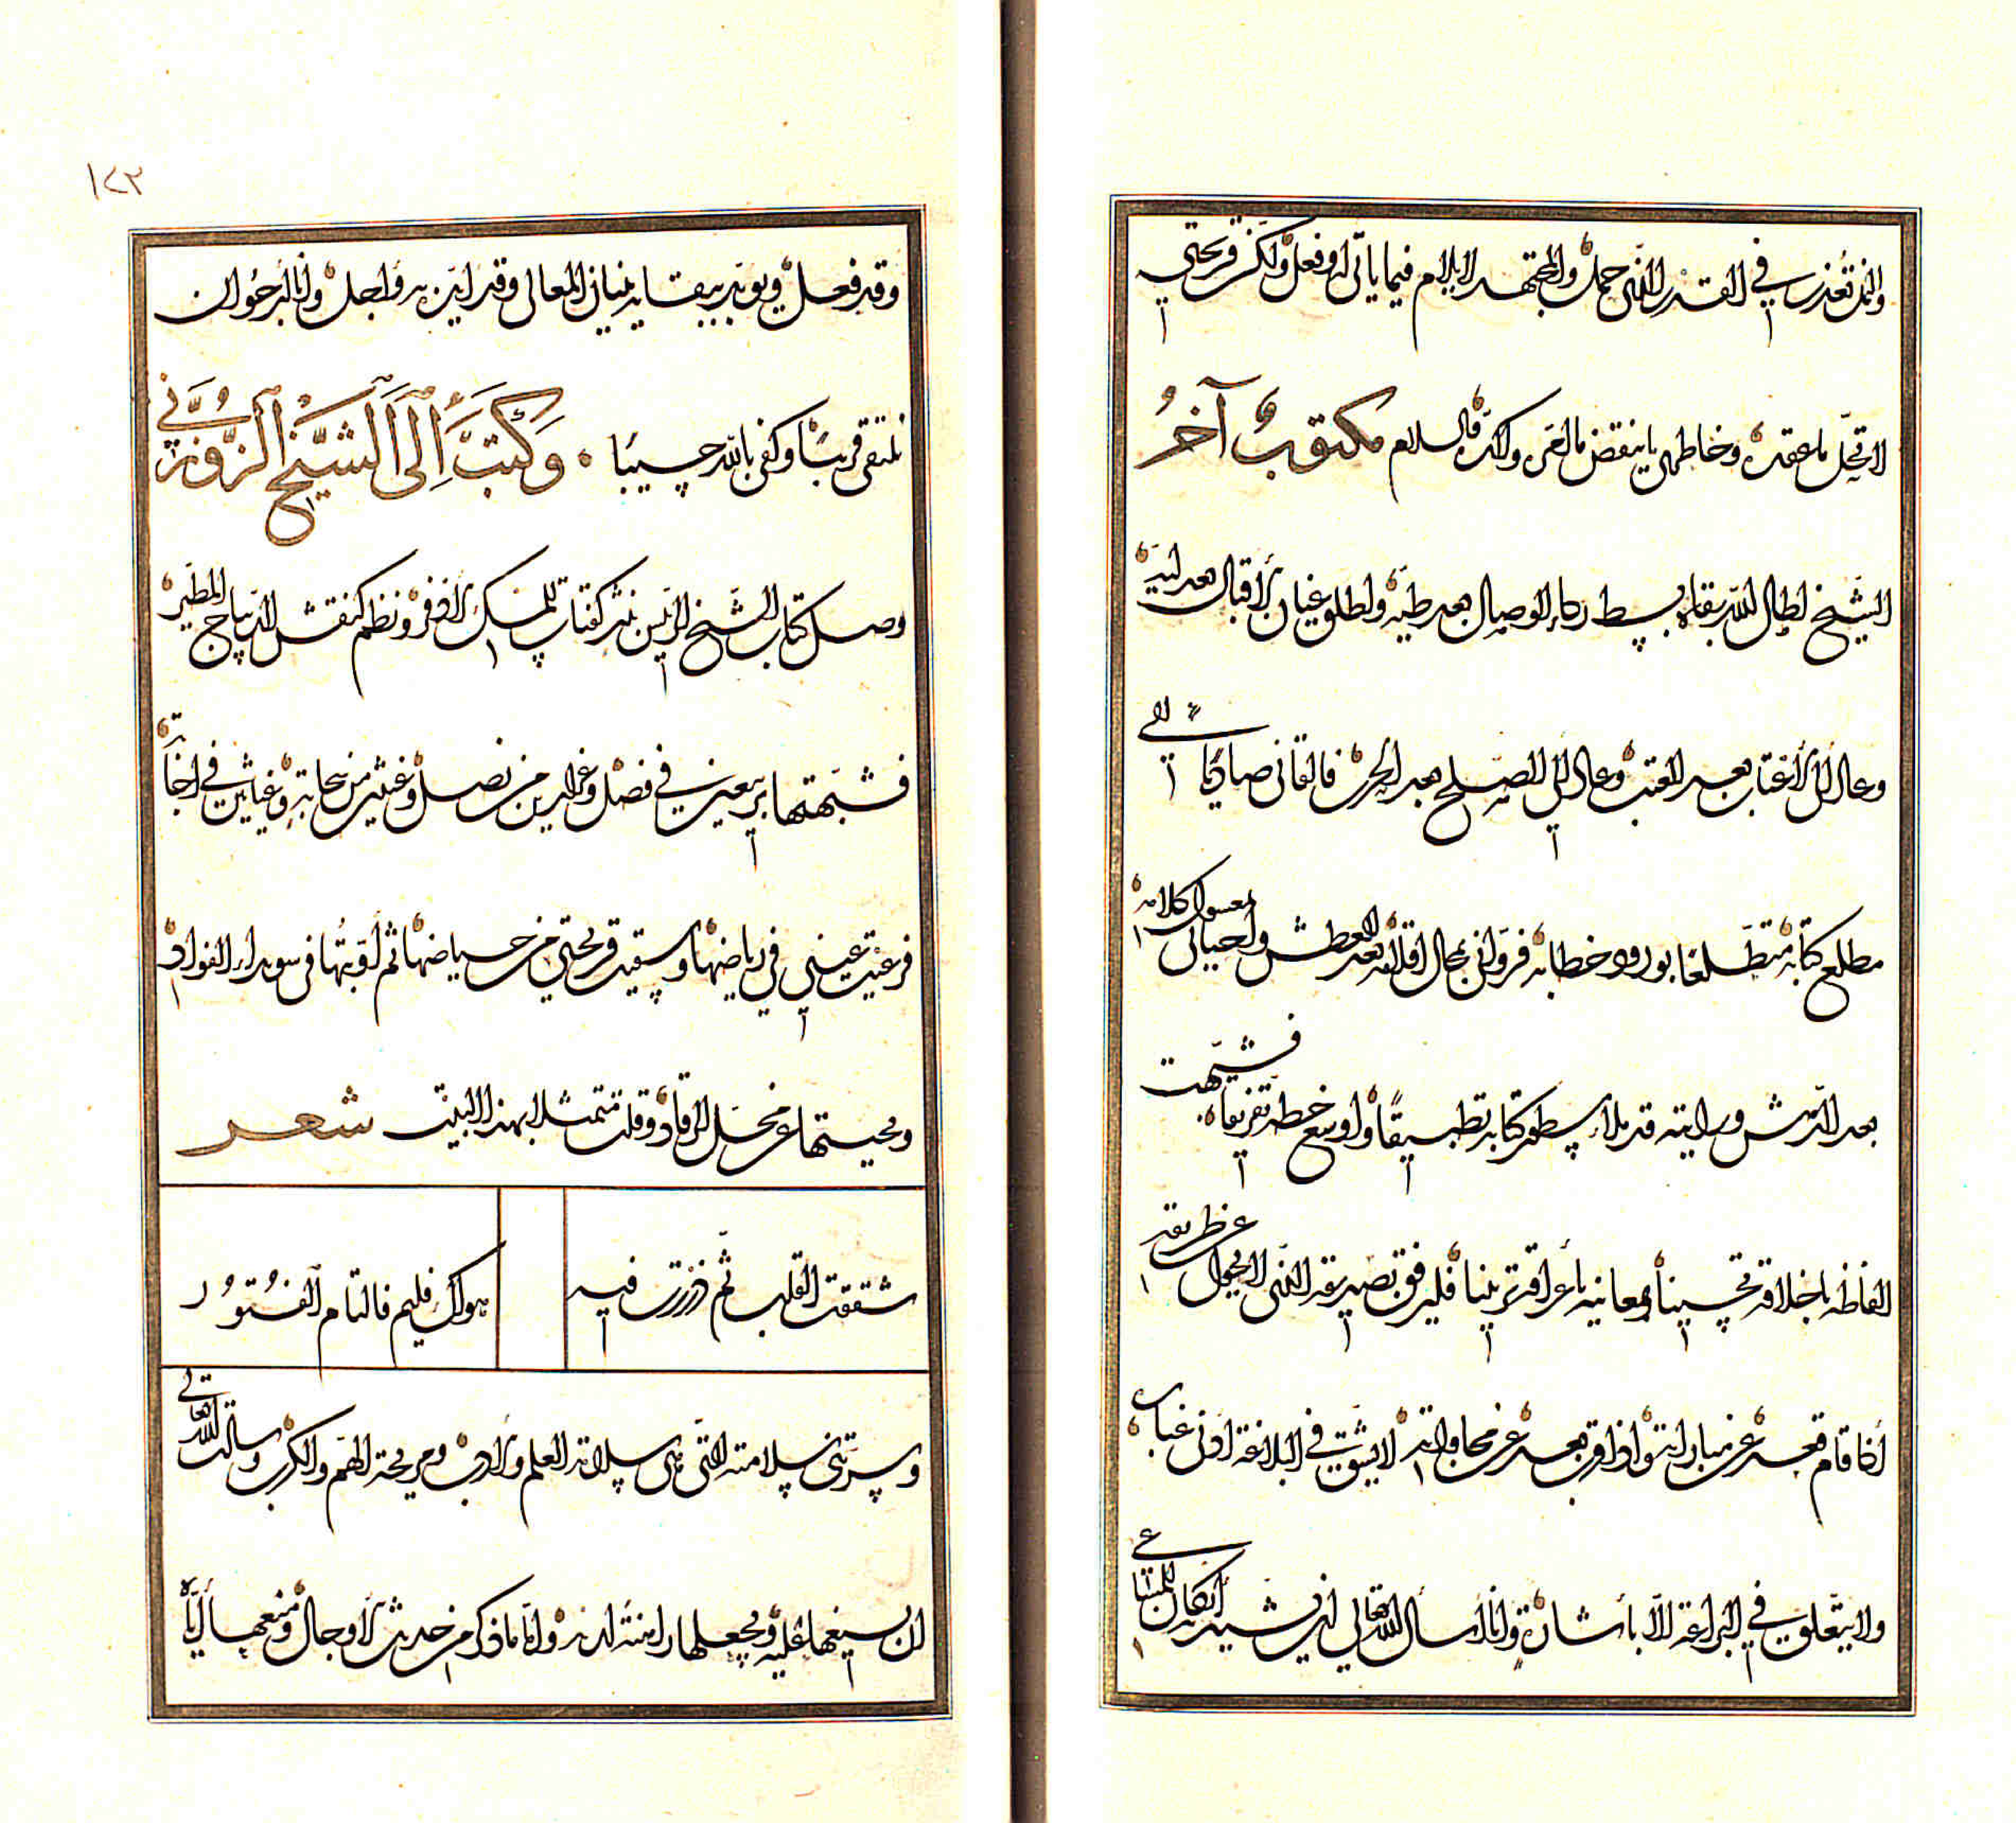 والمتعذر في القدر الذي حمل والمجتهد لا يلام فيما يأتي له وفعل ولكن قريحتي
لا تحل ما عقده وخاطري ما ينقض ما أمر وأكده والسلام مكتوب آخر
الشيخ أطال الله بقاه بسط رداء الوصال بعد طيه وأطلق عنان الاقبال بعد ليه
وعاد إلى الاعتاب بعد العتب وعاد إلى الصلح بعد الحرب فالفاني صاديا إلى
مطلع كتابه متطلعا بورود خطابه فرواني بحال لفظه بعد العطش وأحياني بمعسول كلامه
بعد الدهش ورأيته قد ملأ سطور كتابه تطبيقا وأوسع خطه تفريقا فشبهت
ألفاظه بأخلاقه تحسينا ومعانيه بأعراقه تزيينا فليرفق بصديقه الذي لا يحول عن طريقه
إذا قام قعد عن مباراته وإذا قرب بعد عن مجاراته لا يشق في البلاغة أدنى غباره
ولا يتعلق في البراعة إلا بأستاره وأنا أسأل الله تعالى أن يشيد أركان المساعي
١٢٣
وقد فعل ويؤيد ببقائه بنيان المعالي وقد أيد به وأجل وأنا أرجو أن
نلتقي قريبا وكفى بالله حسيبا وكتبت إلى الشيخ الزوزني
وصل كتاب الشيخ الرئيس بنثر كفتات المسك الاذفر ونظم كنقش الديباج المطير
فشبهتها بربيعين في فصل وغرارين من نصل وغيثين من سحابة وغياثين في إجابة
فرعيت عيني في رياضها وسقيت قريحتي من حياضها ثم أوبتها في سويداء الفواد
ومحيتها عن محل الرقاد وقلت متمثلا بهذا البيت شعر
شققت القلب ثم ذررت فيه هواك فليم فالتام الفتور
وسرتني سلامته التي هي سلامة العلم والادب ومريحة الهم والكرب وسألت الله تعالى
ان يسبغها عليه ويجعلها راهنة لديه وأما ما ذكر من حديث الاوجال ومنعها إياه